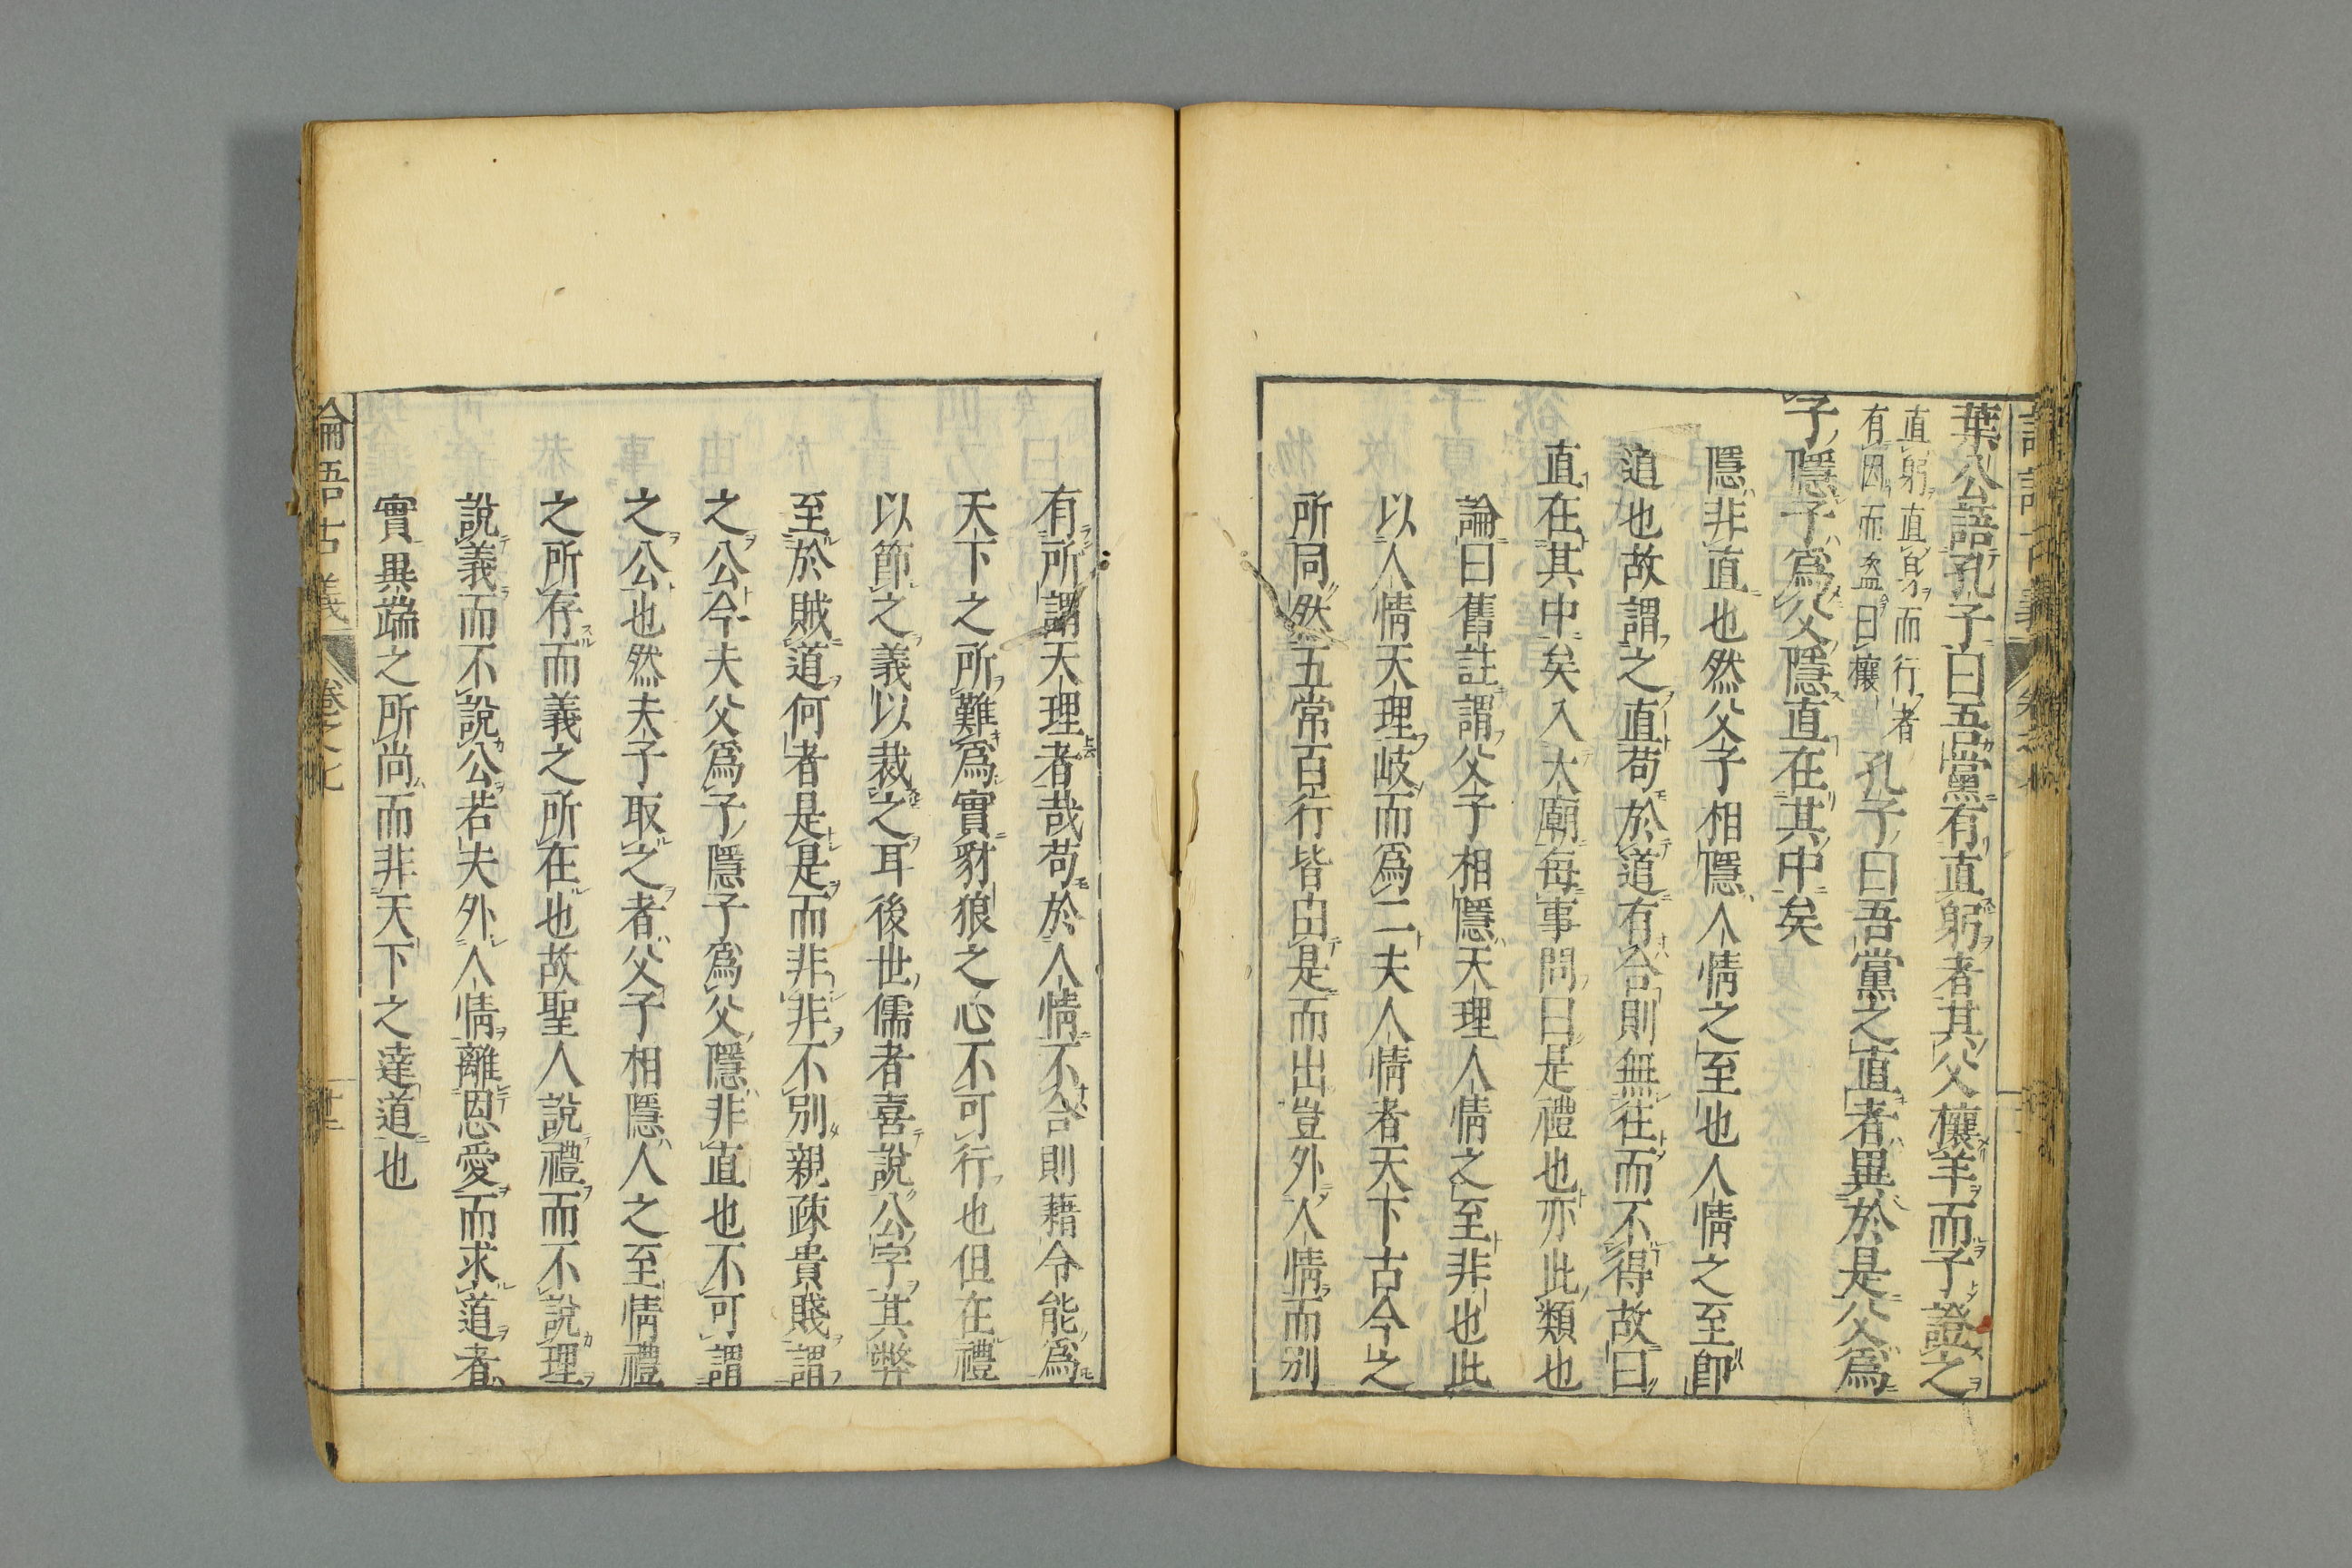 葉公語孔子曰吾黨有直躬者其父攘羊而子證之
直躬直身而行者
有因而盗曰攘
孔子曰吾黨之直者異於是父爲
子隱子爲父隱直在其中矣
隱非直也然父子相隱人情之至也人情之至卽
道也故謂之直苟於道有合則無往而不得故曰
直在其中矣入大廟每事問曰是禮也亦此類也
論曰舊註謂父子相隱天理人情之至非也此
以人情天理岐而爲二夫人情者天下古今之
所同然五常百行皆由是而出豈外人情而別
有所謂天理者哉苟於人情不合則藉令能爲
天下之所難爲實豺狼之心不可行也但在禮
以節之義以裁之耳後世儒者喜說公字其弊
至於賊道何者是是而非非不別親疎貴賤謂
之公今夫父爲子隱子爲父隱非直也不可謂
之公也然夫子取之者父子相隱人之至情禮
之所存而義之所在也故聖人說禮而不說理
說義而不說公若夫外人情離恩愛而求道者
實異端之所尚而非天下之達道也
論吾古義 卷之七